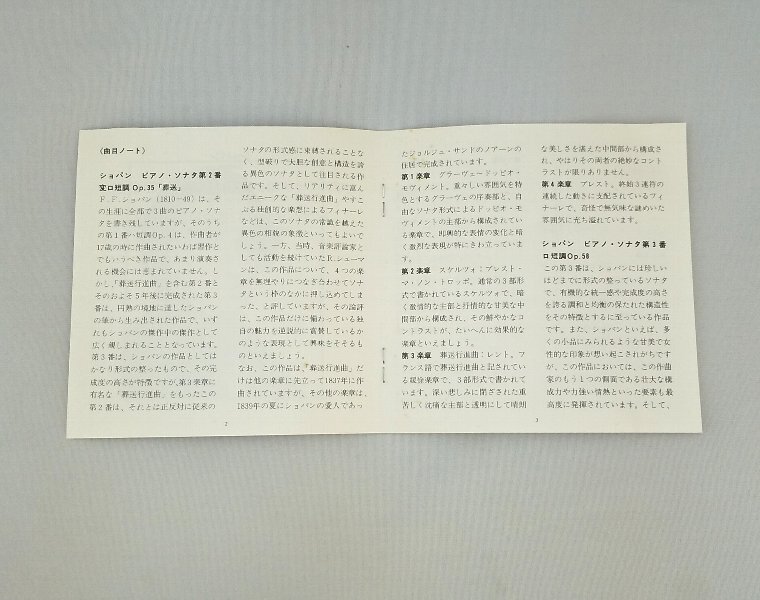 〈曲目ノート〉
ショパン　ピアノ・ソナタ第2番
変ロ短調 Op.35「葬送」
F.F.ショパン(1810－49)は、そ
の生涯に全部で3曲のピアノ・ソナ
タを書き残していますが、そのうち
の第1番ハ短調Op.4は、作曲者が
17歳の時に作曲されたいわば習作と
でもいうべき作品で、あまり演奏さ
れる機会には恵まれていません。し
かし「葬送行進曲」を含む第2番と
そのおよそ5年後に完成された第3
番は、円熟の境地に達したショパン
の筆から生み出された作品で、いず
れもショパンの傑作中の傑作として
広く親しまれることとなっています。
第3番は、ショパンの作品としては
かなり形式の整ったもので、その完
成度の高さが特徴ですが、第3楽章に
有名な「葬送行進曲」をもつこの
第2番は、それとは正反対に従来の
2
ソナタの形式感に束縛されることな
く、型破りで大胆な創意と構造を誇
る異色のソナタとして注目される作
品です。そして、リアリティに富ん
だユニークな「葬送行進曲」やすこ
ぶる独創的な楽想によるフィナーレ
などは、このソナタの常識を越えた
異色の相貌の象徴といってもよいで
しょう。一方、当時、音楽評論家と
しても活動を続けていたR.シューマ
ンは、この作品について、4つの楽
章を無理やりにつなぎ合わせてソナ
タという枠のなかに押し込めてしま
った、と評していますが、その論評
は、この作品だけに備わっている独
自の魅力を逆説的に賞賛しているか
のような表現として興味をそそるも
のといえましょう。
なお、この作品は、「葬送行進曲」だ
けは他の楽章に先立って1837年に作
曲されていますが、その他の楽章は、
1839年の夏にショパンの愛人であっ
たジョルジュ・サンドのノアーンの
住居で完成されています。
第1楽章　グラーヴェードッピオ・
モヴィメント。重々しい雰囲気を特
色とするグラーヴェの序奏部と、自
由なソナタ形式によるドッピオ・モ
ヴィメントの主部から構成されてい
る楽章で、即興的な表情の変化と暗
く激烈な表現が特にきわ立っていま
す。
第2楽章　スケルツォ：プレスト・
マ・ノン・トロッポ。通常の3部形
式で書かれているスケルツォで、暗
く激情的な主部と抒情的な甘美な中
間部から構成され、その鮮やかなコ
ントラストが、たいへんに効果的な
楽章といえましょう。
第3楽章　葬送行進曲：レント。フ
ランス語で葬送行進曲と記されてい
る緩徐楽章で、3部形式で書かれて
います。深い悲しみに閉ざされた重
苦しく沈痛な主部と透明にして晴朗
3
な美しさを湛えた中間部から構成さ
れ、やはりその両者の絶妙なコント
ラストが限りありません。
第4楽章　プレスト。終始3連符の
連続した動きに支配されているフィ
ナーレで、奇怪で無気味な謎めいた
雰囲気に充ち溢れています。
ショパン　ピアノ・ソナタ第3番
ロ短調Op.58
この第3番は、ショパンには珍しい
ほどまでに形式の整っているソナタ
で、有機的な統一感や完成度の高さ
を誇る調和と均衡の保たれた構造性
をその特徴とするに至っている作品
です。また、ショパンといえば、多
くの小品にみられるような甘美で女
性的な印象が想い起こされがちです
が、この作品においては、この作曲
家のもう1つの側面である壮大な構
成力や力強い情熱といった要素も最
高度に発揮されています。そして、